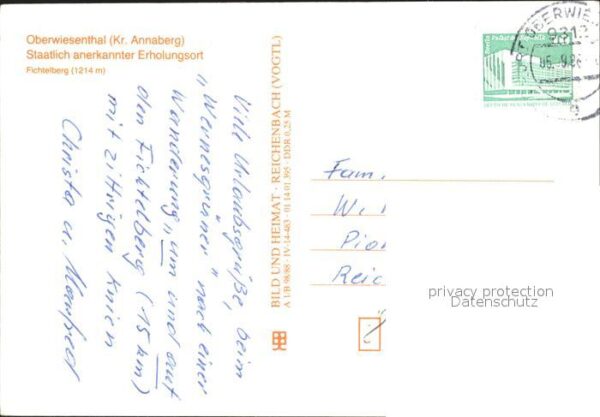 Oberwiesenthal (Kr. Annaberg)
Staatlich anerkannter Erholungsort
Fichtelberg (1214 m)
Viele Urlaubsgrüße, beim
„Wernesgrüner" nach einer
Wanderung „um und auf
den Fichtelberg (15 km)
mit zittrigen Knien
Christa u. Manfred
BILD UND HEIMAT · REICHENBACH (VOGTL)
A 1/B 98/88 · IV-14-483 · 01 14 01 395 · DDR 0,25 M
OBERWIE
Fam.
W.
Pion
Reic
privacy protection
Datenschutz